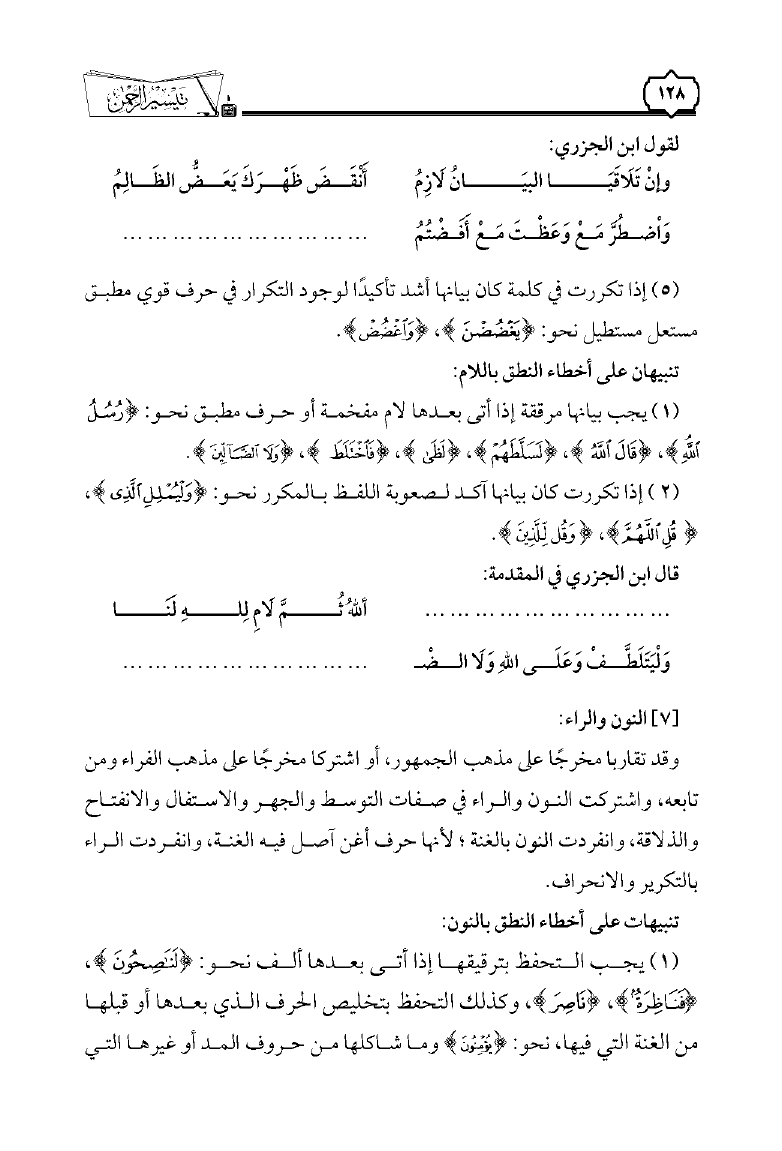 تيسير الرحمن
١٢٨
لقول ابن الجزري:
وإنْ تَلَاقَيَـا البَيَـانُ لَازِمُ أَنْقَـضَ ظَهْـرَكَ يَعَـضُّ الظَـالِمُ
وَاْضـطُرَّ مَـعْ وَعَظْـتَ مَـعْ أَفَـضْتُمُ ... ... ... ... ... ... ... ... ... ...
(٥) إذا تكررت في كلمة كان بيانها أشد تأكيدًا لوجود التكرار في حرف قوي مطبـق
مستعل مستطيل نحو: ﴿يَغْضُضْنَ﴾، ﴿وَٱغْضُضْ﴾.
تنبيهان على أخطاء النطق باللام:
(١) يجب بيانها مرققة إذا أتى بعـدها لام مفخمـة أو حـرف مطبـق نحـو: ﴿رُسُلُ
ٱللَّهِ﴾، ﴿قَالَ ٱللَّهُ﴾، ﴿لَسَلَّطَهُمْ﴾، ﴿لَظَىٰ﴾، ﴿فَٱخْتَلَطَ﴾، ﴿وَلَا ٱلضَّآلِّينَ﴾.
(٢) إذا تكررت كان بيانها آكـد لـصعوبة اللفـظ بـالمكرر نحـو: ﴿وَلْيُمْلِلِ ٱلَّذِى﴾،
﴿قُلِ ٱللَّهُمَّ﴾، ﴿وَقُل لِّلَّذِينَ﴾.
قال ابن الجزري في المقدمة:
... ... ... ... ... ... ... ... ... ... أللهُ ثُـمَّ لَامِ لِلـهِ لَنَـا
وَلْيَتَلَطَّـفْ وَعَلَـى اللهِ وَلَا الـضْـ ... ... ... ... ... ... ... ... ... ...
[٧] النون والراء:
وقد تقاربا مخرجًا على مذهب الجمهور، أو اشتركا مخرجًا على مذهب الفراء ومن
تابعه، واشتركت النـون والـراء في صـفات التوسـط والجهـر والاستفال والانفتـاح
والذلاقة، وانفردت النون بالغنة ؛ لأنها حرف أغن آصـل فيـه الغنـة، وانفـردت الـراء
بالتكرير والانحراف.
تنبيهات على أخطاء النطق بالنون:
(١) يجـب الـتحفظ بترقيقهـا إذا أتـى بعـدها ألـف نحـو: ﴿لَنَٰصِحُونَ﴾،
﴿فَنَاظِرَةٌ﴾، ﴿نَاصِرَ﴾، وكذلك التحفظ بتخليص الحرف الـذي بعـدها أو قبلهـا
من الغنة التي فيها، نحو: ﴿يُؤْمِنُونَ﴾ ومـا شـاكلها مـن حـروف المـد أو غيرهـا التـي